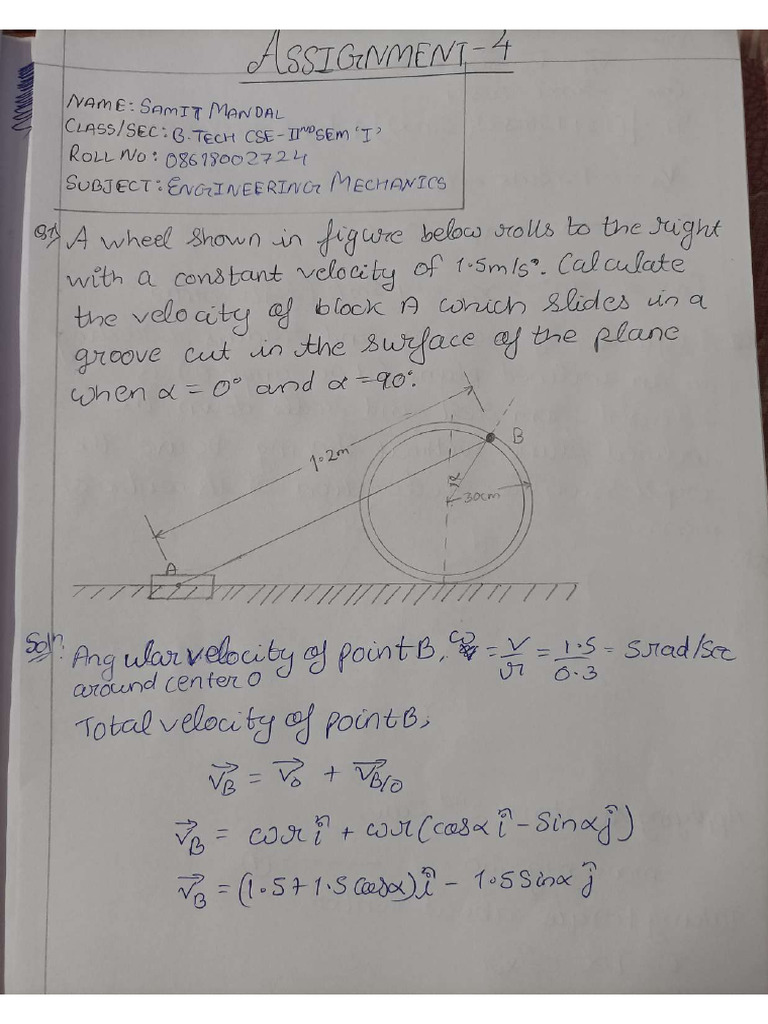 ASSIGNMENT-4
NAME: SAMIT MANDAL
CLASS/SEC: B.TECH CSE-IIND SEM 'I'
ROLL NO: 08618002724
SUBJECT: ENGINEERING MECHANICS
Q1) A wheel shown in figure below rolls to the right
with a constant velocity of 1.5m/s. Calculate
the velocity of block A which slides in a
groove cut in the surface of the plane
when α = 0° and α = 90°.
1.2m
B
α
30cm
A
Soln: Angular velocity of point B, ω = V/r = 1.5/0.3 = 5 rad/sec
around center O
Total velocity of point B,
v⃗B = v⃗o + v⃗B/O
v⃗B = ωr î + ωr(cosα î - Sinα ĵ)
v⃗B = (1.5+1.5 cosα) î - 1.5 Sinα ĵ